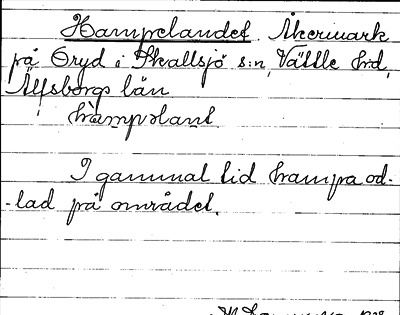 Hampelandet. Åkermark
på Öryd i Skallsjö s:n, Vättle hrd,
Älfsborgs län
hàmpəlant.
I gammal tid hampa od-
-lad på området.